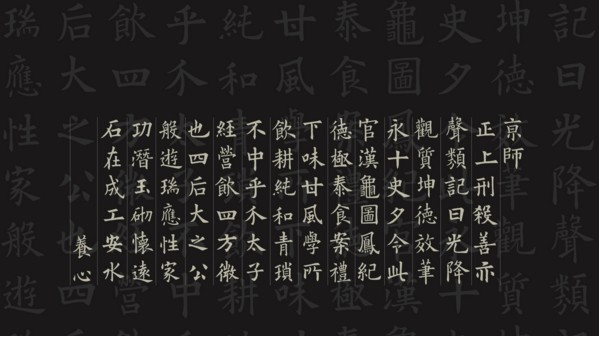 京師
正上刑殺善亦
聲類記日光降
觀質坤德效筆
永十史夕今此
官漢龜圖鳳紀
德極泰食案禮
下味甘風學所
飲耕純和青瑣
不中乎不太子
經營飲四方微
也四后大之公
般遊瑞應性家
功潛玉砌懷遠
石在成工安水
養心